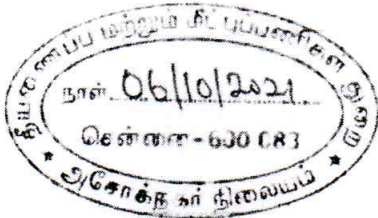 தீயணைப்பு மற்றும் மீட்புப்பணிகள் துறை
நாள் 06/10/2021
சென்னை-600 083
* அசோக்நகர் நிலையம் *